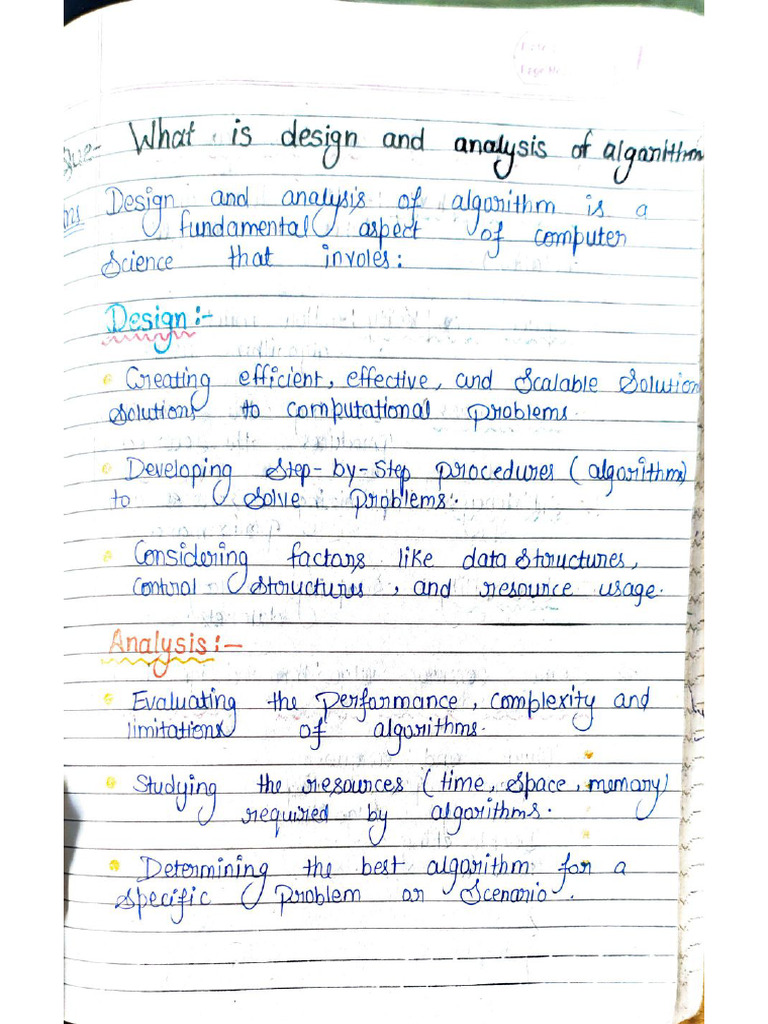 Date:
Page No.
1
Que- What is design and analysis of algorithm
Ans Design and analysis of algorithm is a
fundamental aspect of computer
Science that involes:
Design:-
Creating efficient, effective, and Scalable Solution
Solutions to computational problems.
Developing Step-by-Step procedures (algorithms)
to solve problems.
Considering factors like data structures,
control structures, and resource usage.
Analysis:-
Evaluating the performance, complexity and
limitations of algorithms.
Studying the resources (time, space, memory)
required by algorithms.
Determining the best algorithm for a
specific problem or Scenario.